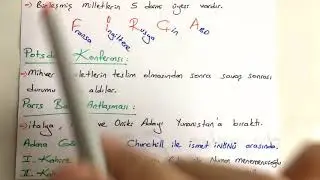 → Birleşmiş Milletlerin 5 daimi üyesi vardır.
F İ R Ç A
Fransa İngiltere Rusya Çin ABD
Potsdam Konferansı:
→ Mihver milletlerin teslim olmasından sonra savaş sonrası
durumu aldılar.
Paris Antlaşması:
→ İtalya, ve Oniki Adayı Yunanistan'a bıraktı.
Adana Churchill ile ismet iNÖNÜ arasında.
I. Kahire Numan menemencioğlu
II. Kah